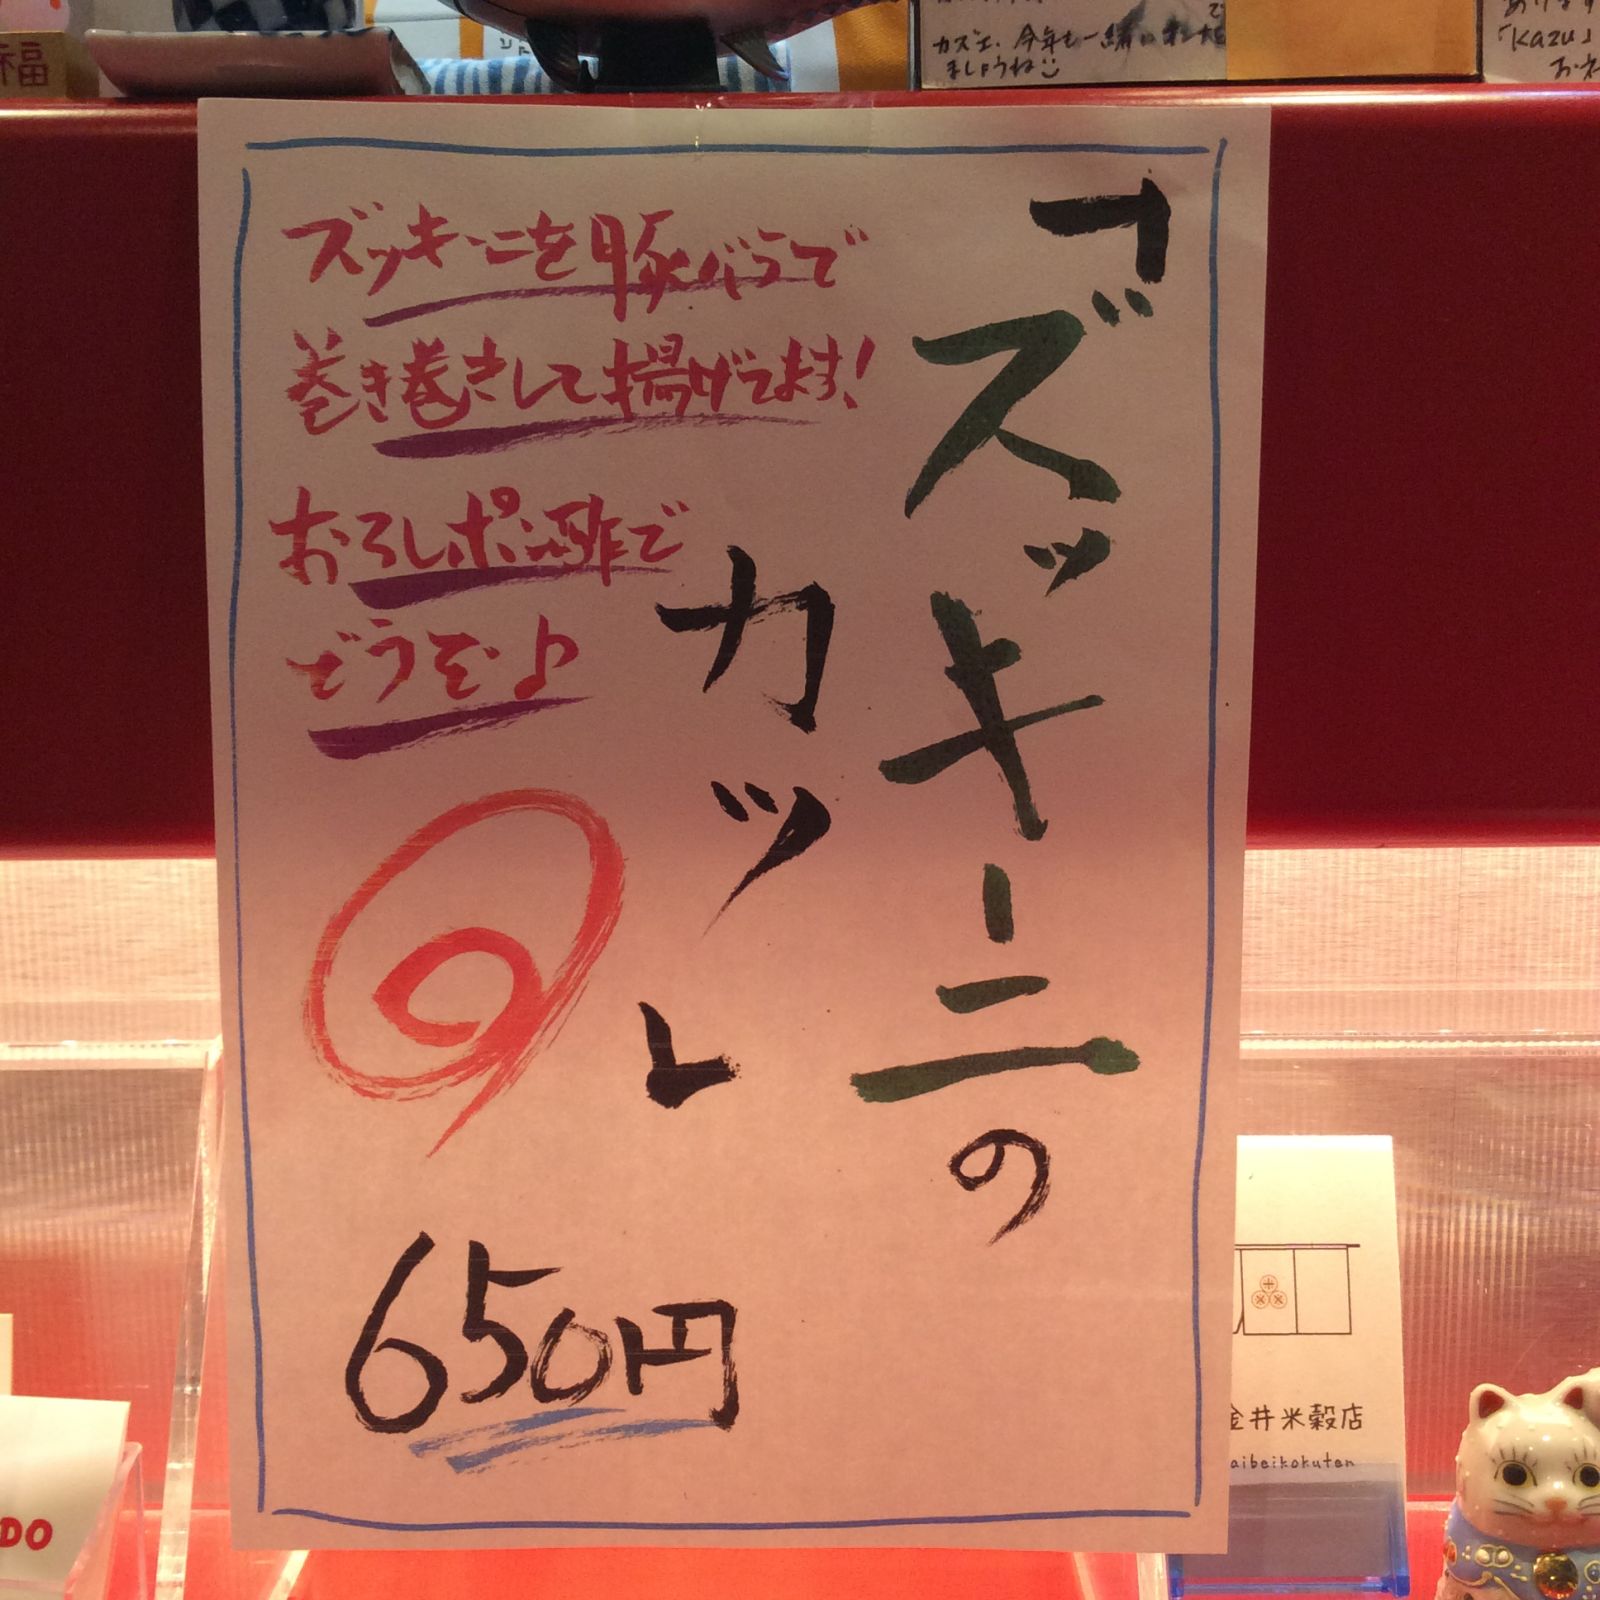 「ズッキーニの
カツレ
ズッキーニを豚バラで
巻き巻きして揚げてます!
おろしポン酢で
どうぞ♪
650円
福
カズエ、今年も一緒に
ましょうね
「Kazu」
金井米穀店
aibeikokuten
DO